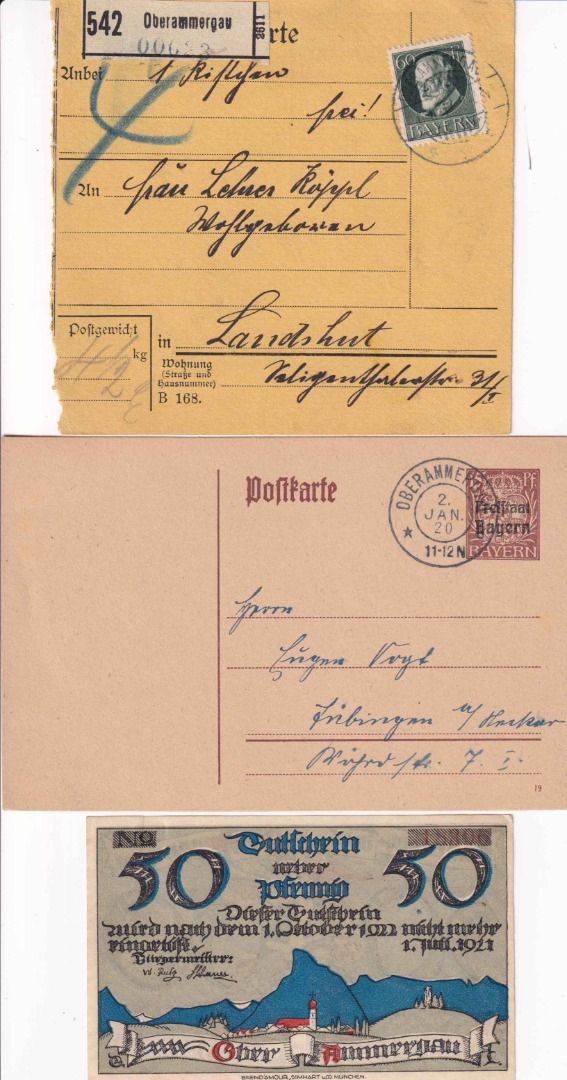 542 Oberammergau 2611
rte
60 Pf
BAYERN
Anbei 1 Kistchen
frei!
4
An Frau Lehrer Köppl
Wohlgeboren
Postgewicht
kg
in Landshut
Wohnung
(Straße und
Hausnummer)
Seligenthalerstr. 31/I
B 168.
Postkarte
OBERAMMERGAU
2.
JAN.
20
11-12 N
PF
Freistaat
Bayern
BAYERN
Herrn
Eugen Vogt
Tübingen a/Neckar
Wöhrdstr. 7. I.
19
No
50 Gutschein 50
ueber
Pfennig
Dieser Gutschein
wird nach dem 1. Oktober 1922 nicht mehr
eingelöst. 1. Juli 1921
Bürgermeister:
Ober Ammergau
BREND'AMOUR, SIMHART U.CO. MÜNCHEN.